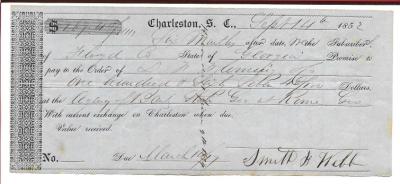 Charleston, S. C., Sept 14th 1852
Six Months after date the Subscriber
of Floyd Co State of Georgia Promise to
pay to the Order of
One Hundred & Sixty Dollars,
at the Agency of Geo at Rome Geo
With current exchange on Charleston when due.
Value received.
No. Due March 17 Smith & Webb